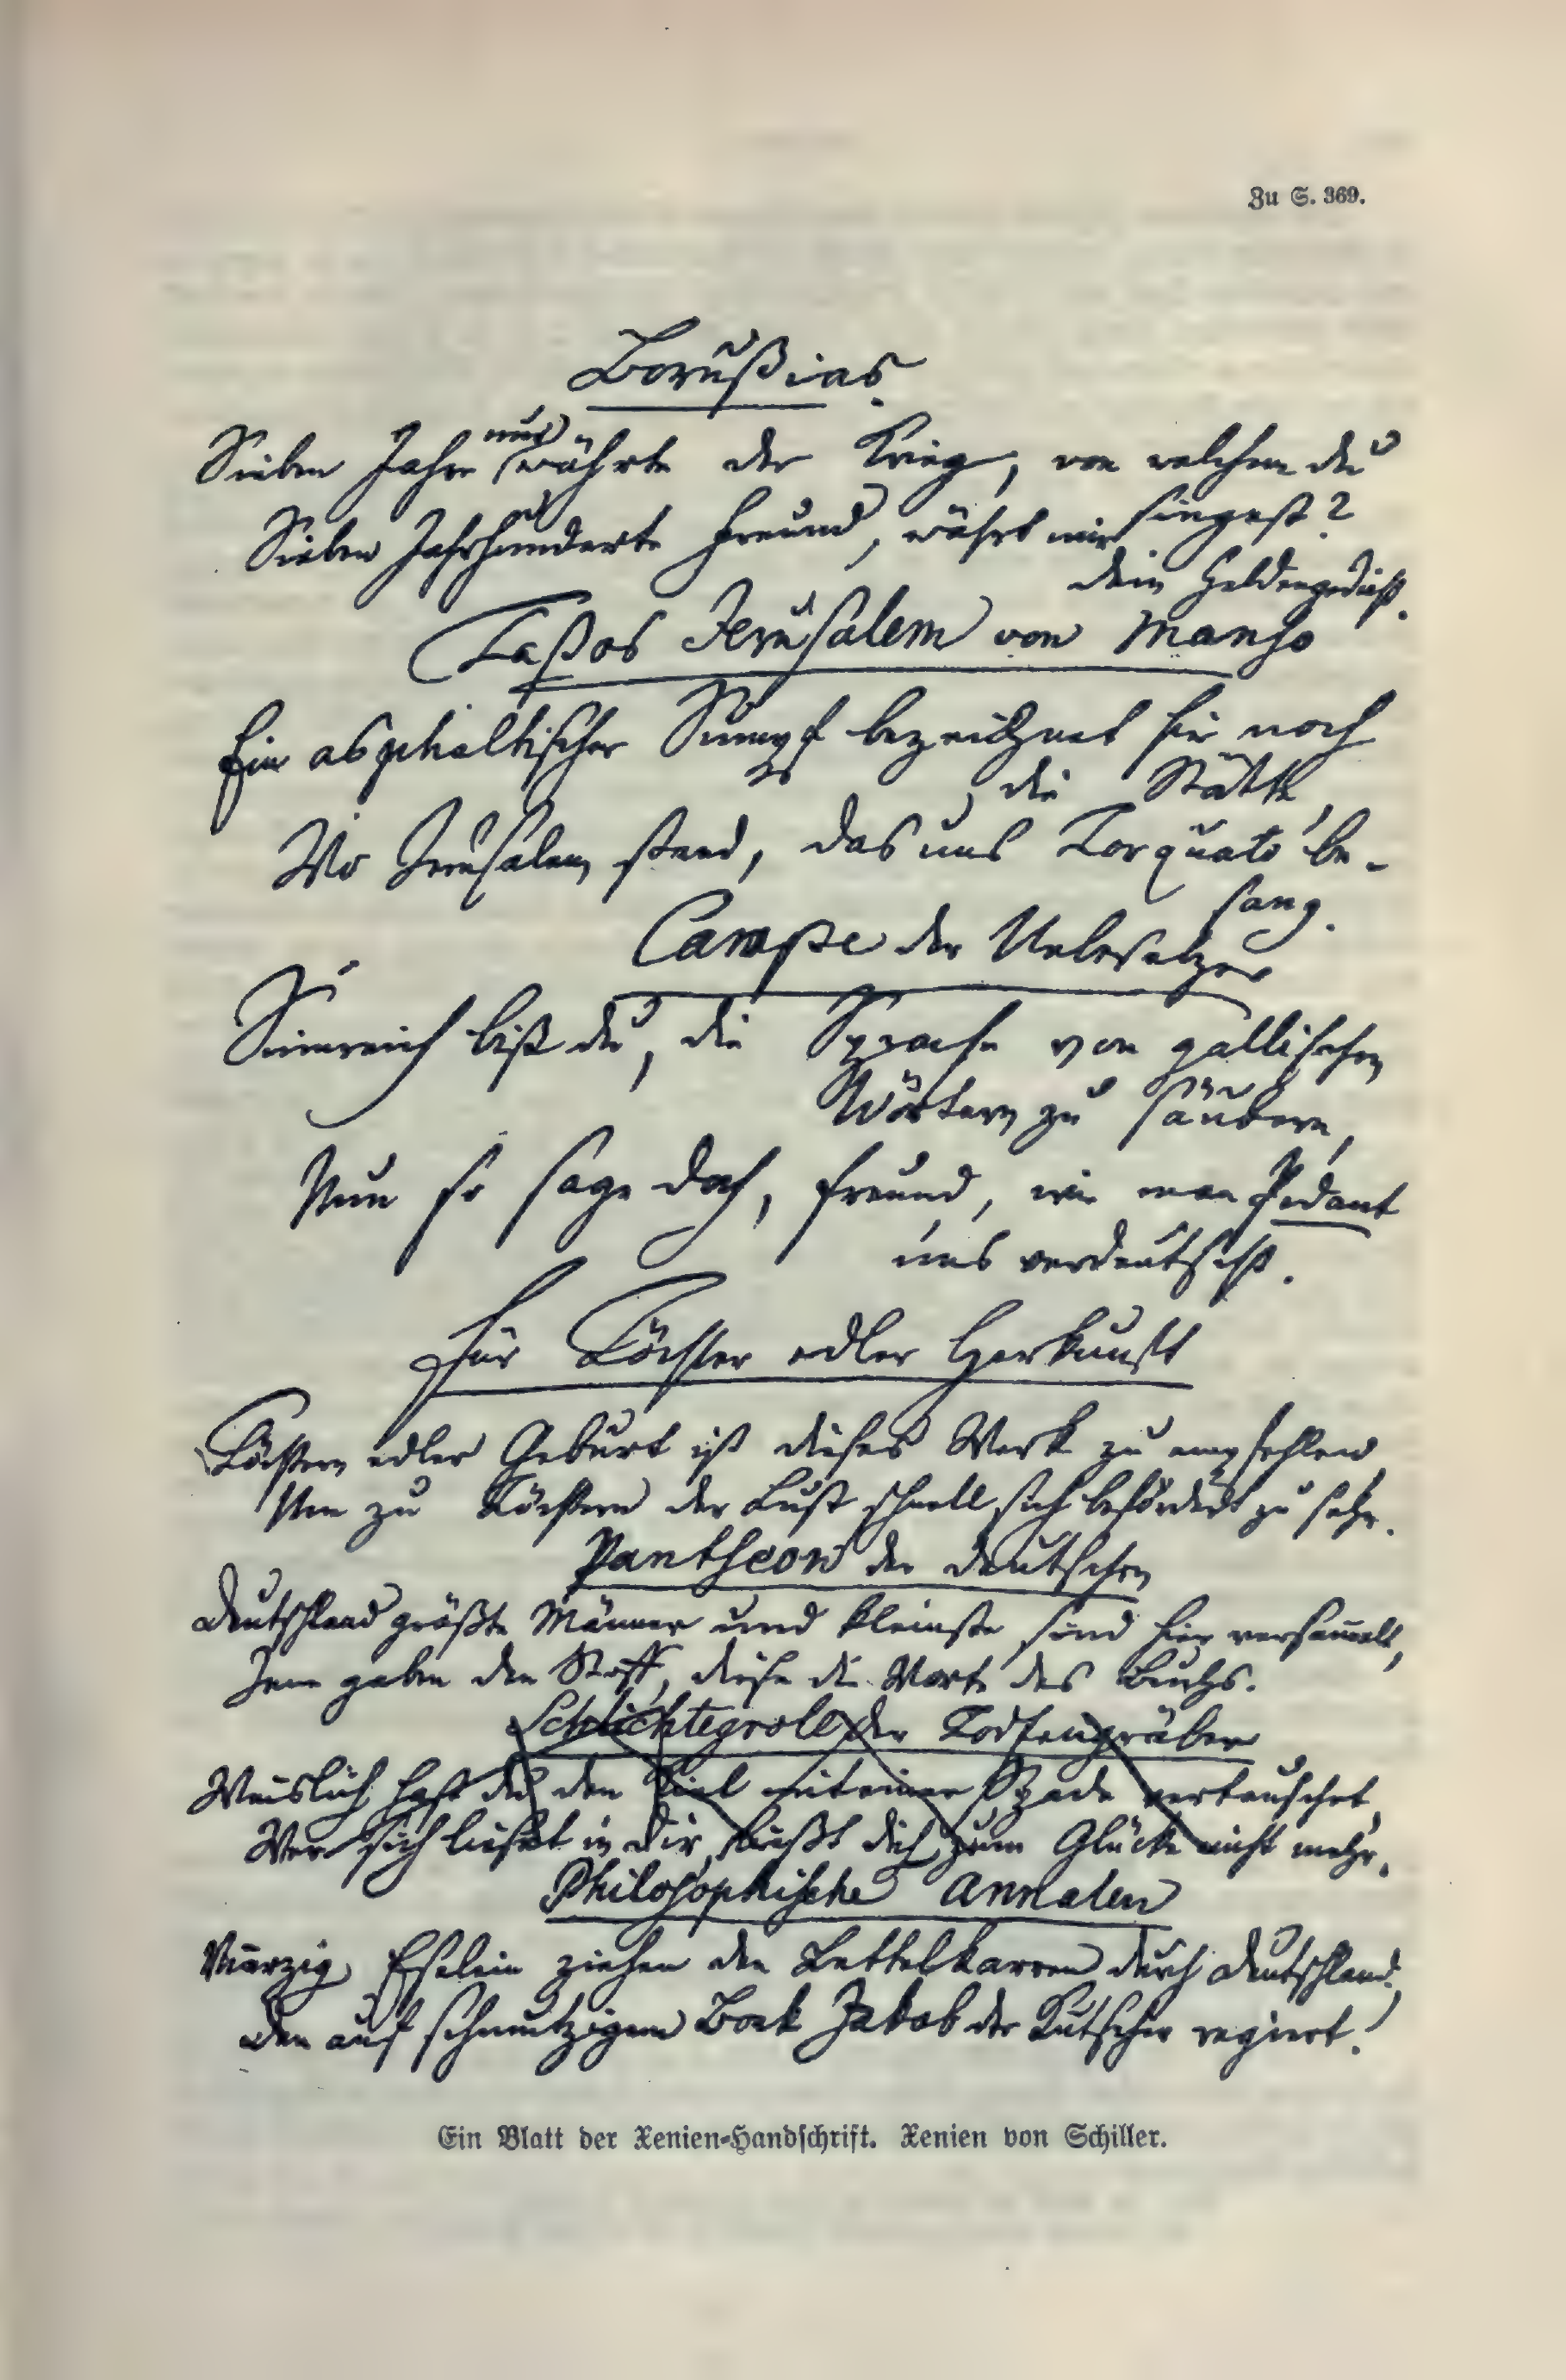 Zu S. 369.
Borußias.
nur
Sieben Jahre währte der Krieg, von welchem du
singest?
Sieben Jahrhunderte Freund, währt mir
dein Heldengedicht.
Taßos Jerusalem von Manso
Ein asphaltischer Sumpf bezeichnet hier noch
die Stätte,
Wo Jerusalem stand, das uns Torquato be-
sang.
Campe der Uebersetzer
Sinnreich bist du, die Sprache von gallischen
Wörtern zu säubern,
Nun so sage doch, Freund, wie man Pedant
uns verdeutscht.
Für Töchter edler Herkunft
Töchtern edler Geburt ist dieses Werk zu empfehlen
Um zu Töchtern der Lust schnell sich befördert zu sehn.
Pantheon der deutschen
Deutschland größte Männer und kleinste sind hier versam̄elt,
Jene gaben den Stoff, diese die Worte des Buchs.
Schlichtegroll der Todtengräber
Weislich hast du den Kiel mit einer Spade vertauschet,
Wer sich ließt in dir, ließt dich zum Glücke nicht mehr.
Philosophische Annalen
Vierzig Eselein ziehen den Bettelkarren durch Deutschland,
Den auf schmutzigem Bock Jakob der Kutscher regiert!
Ein Blatt der Xenien-Handschrift. Xenien von Schiller.